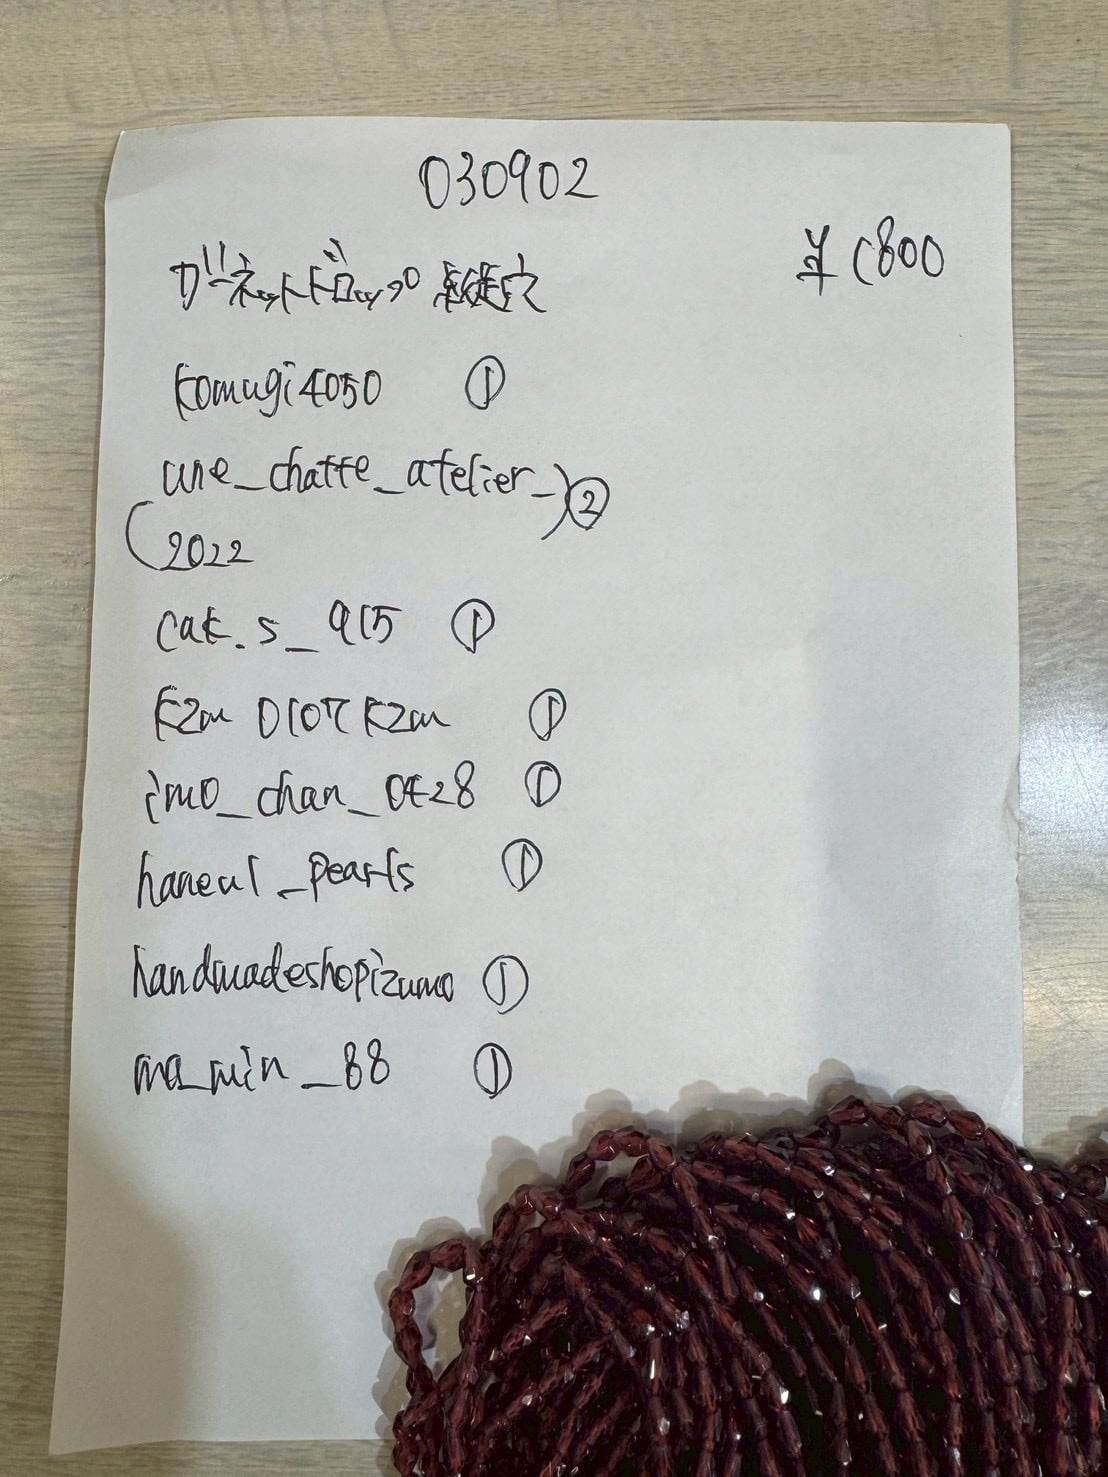 030902
¥1800
ガーネットドロップ 縦穴
komugi4050 ①
une_chatte_atelier_ ②
2022
cat.s_915 ①
kzm0107kzm ①
imo_chan_0428 ①
haneul_pearls ①
handmadeshopizumo ①
ma_min_88 ①